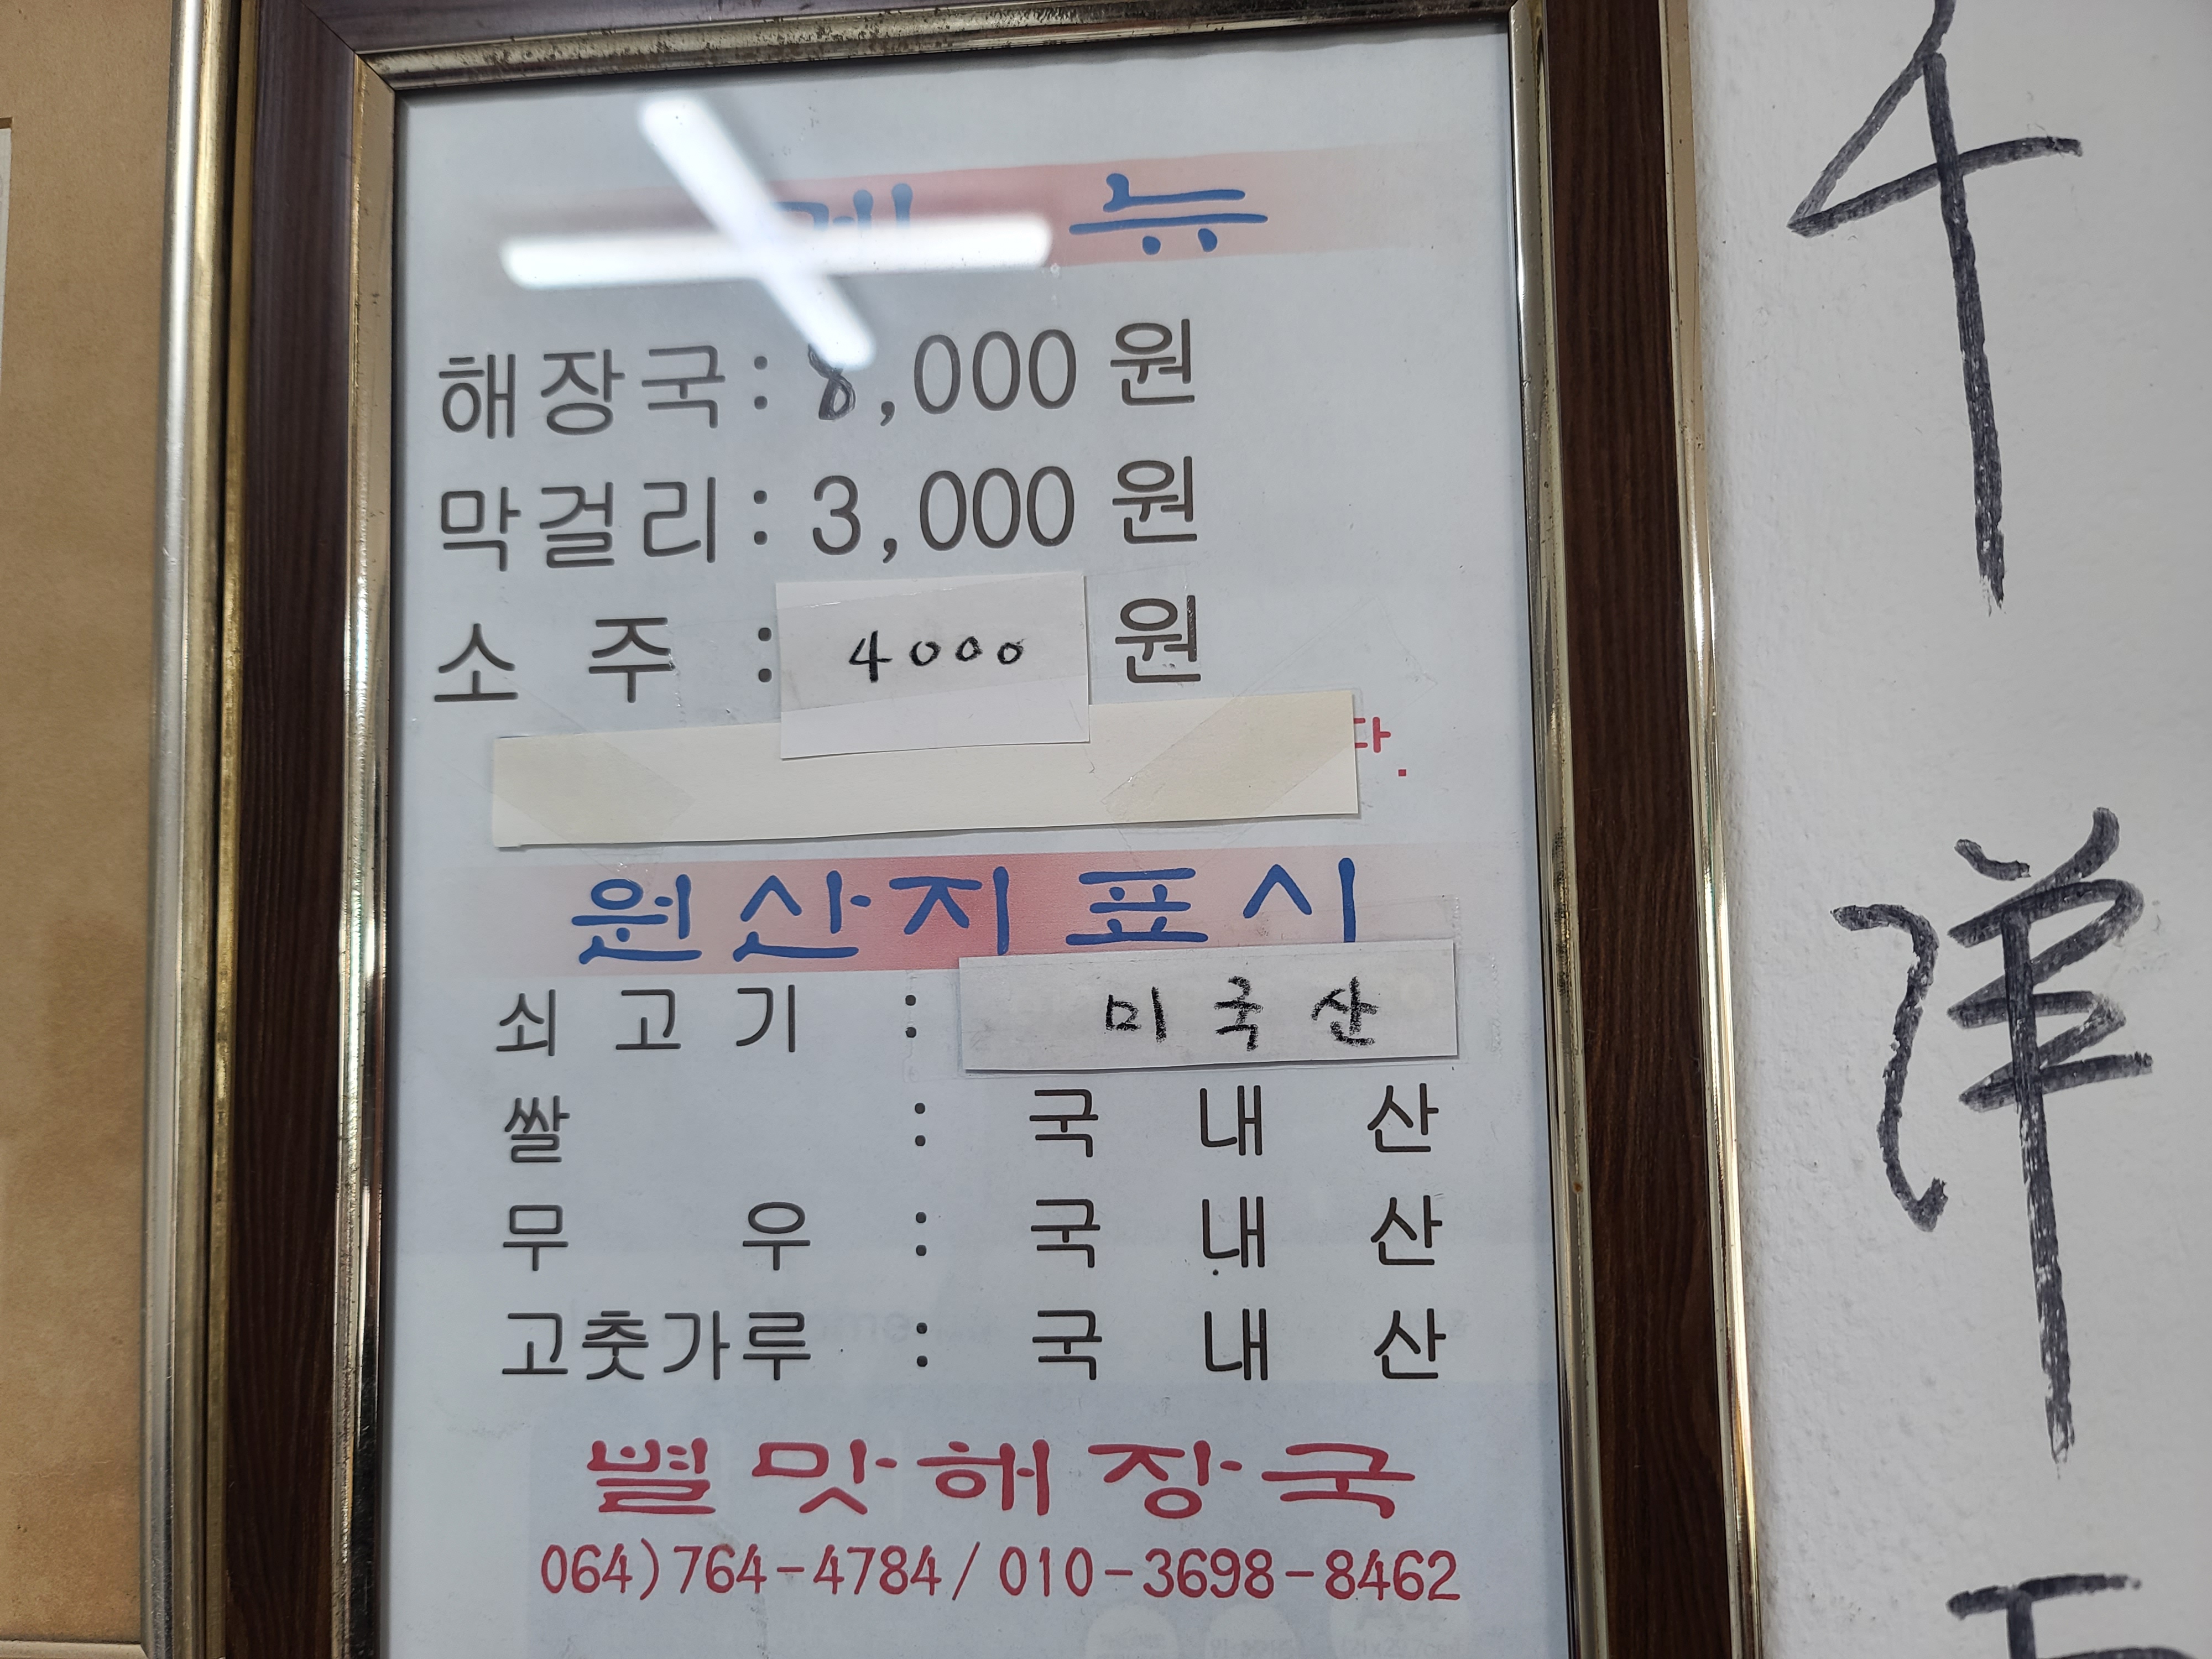 메뉴
해장국: 8,000 원
막걸리: 3,000 원
소 주 : 4000 원
다.
원산지표시
쇠 고 기 : 미국산
쌀 : 국 내 산
무 우 : 국 내 산
고춧가루 : 국 내 산
별맛해장국
064)764-4784/010-3698-8462